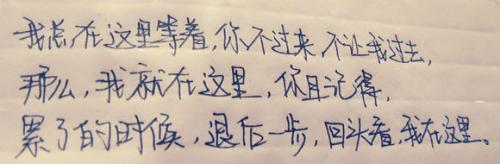 我总在这里等着,你不过来,不让我过去,
那么,我就在这里,你且记得,
累了的时候,退后一步,回头看,我在这里。